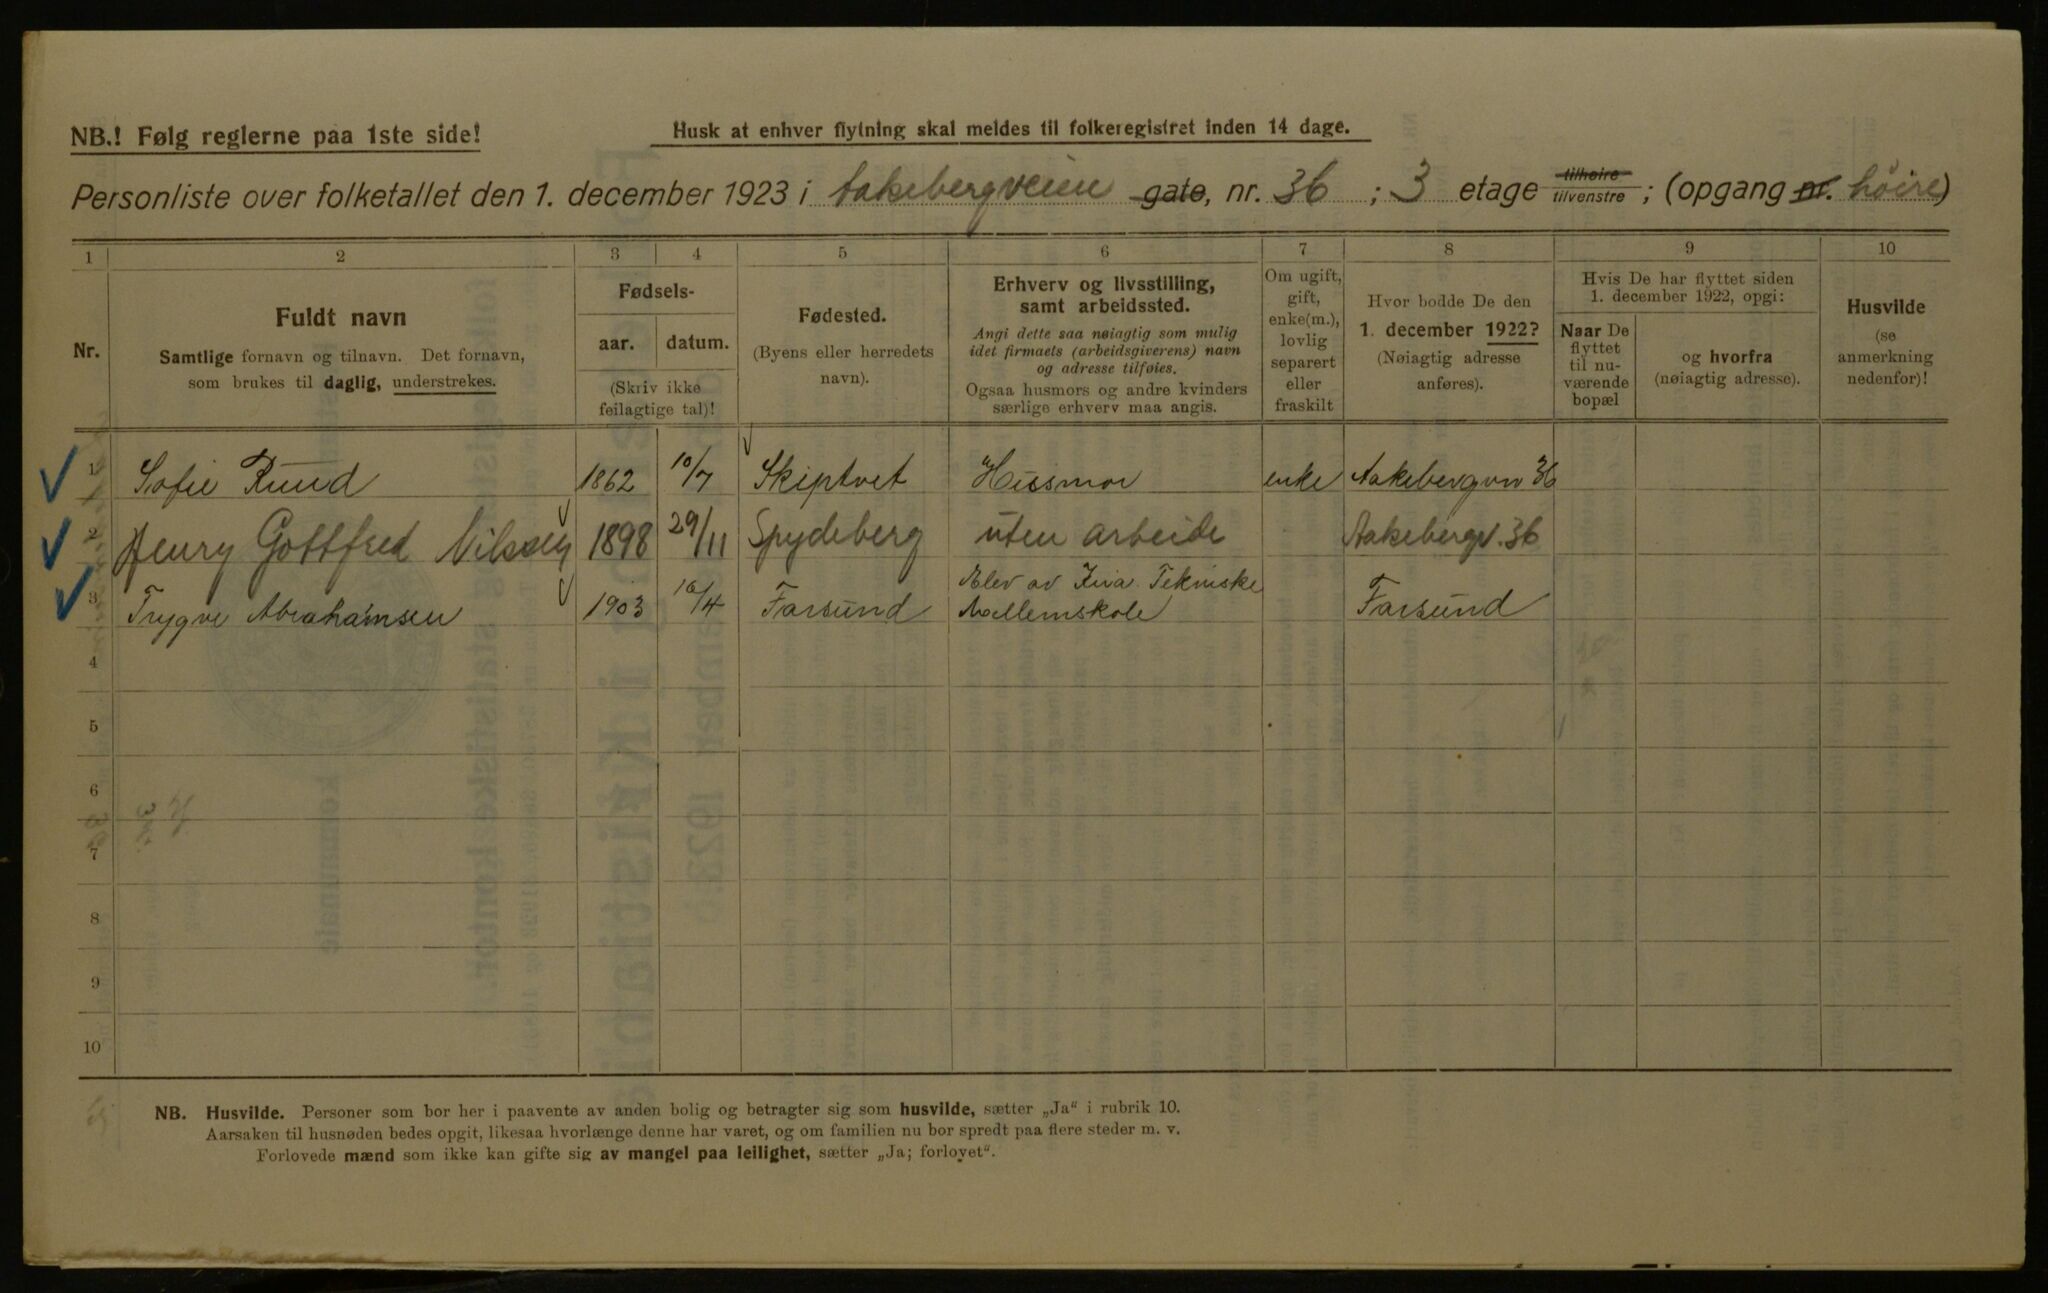 NB.! Følg reglerne paa 1ste side!
Husk at enhver flytning skal meldes til folkeregistret inden 14 dage.
Personliste over folketallet den 1. december 1923 i Aakebergveien gate, nr. 36 ; 3 etage tilhøire tilvenstre ; (opgang nr. höire)
1 2 3 4 5 6 7 8 9 10
Nr.
Fuldt navn
Samtlige fornavn og tilnavn. Det fornavn,
som brukes til daglig, understrekes.
Fødsels-
aar. datum.
(Skriv ikke
feilagtige tal)!
Fødested.
(Byens eller herredets
navn).
Erhverv og livsstilling,
samt arbeidssted.
Angi dette saa nøiagtig som mulig
idet firmaets (arbeidsgiverens) navn
og adresse tilføies.
Ogsaa husmors og andre kvinders
særlige erhverv maa angis.
Om ugift,
gift,
enke(m.),
lovlig
separert
eller
fraskilt
Hvor bodde De den
1. december 1922?
(Nøiagtig adresse
anføres).
Hvis De har flyttet siden
1. december 1922, opgi:
Naar De
flyttet
til nu-
værende
bopæl
og hvorfra
(nøiagtig adresse).
Husvilde
(se
anmerkning
nedenfor)!
1 Sofie Ruud 1862 10/7 Skiptvet Husmor enke Aakebergvn 36
2 Henry Gottfred Nilssen 1898 29/11 Spydeberg uten arbeide Aakebergv. 36
3 Trygve Abrahamsen 1903 16/4 Farsund Elev av Kria Tekniske Mellemskole Farsund
4
5
6
7
8
9
10
NB. Husvilde. Personer som bor her i paavente av anden bolig og betragter sig som husvilde, sætter „Ja“ i rubrik 10.
Aarsaken til husnøden bedes opgit, likesaa hvorlænge denne har varet, og om familien nu bor spredt paa flere steder m. v.
Forlovede mænd som ikke kan gifte sig av mangel paa leilighet, sætter „Ja; forlovet“.